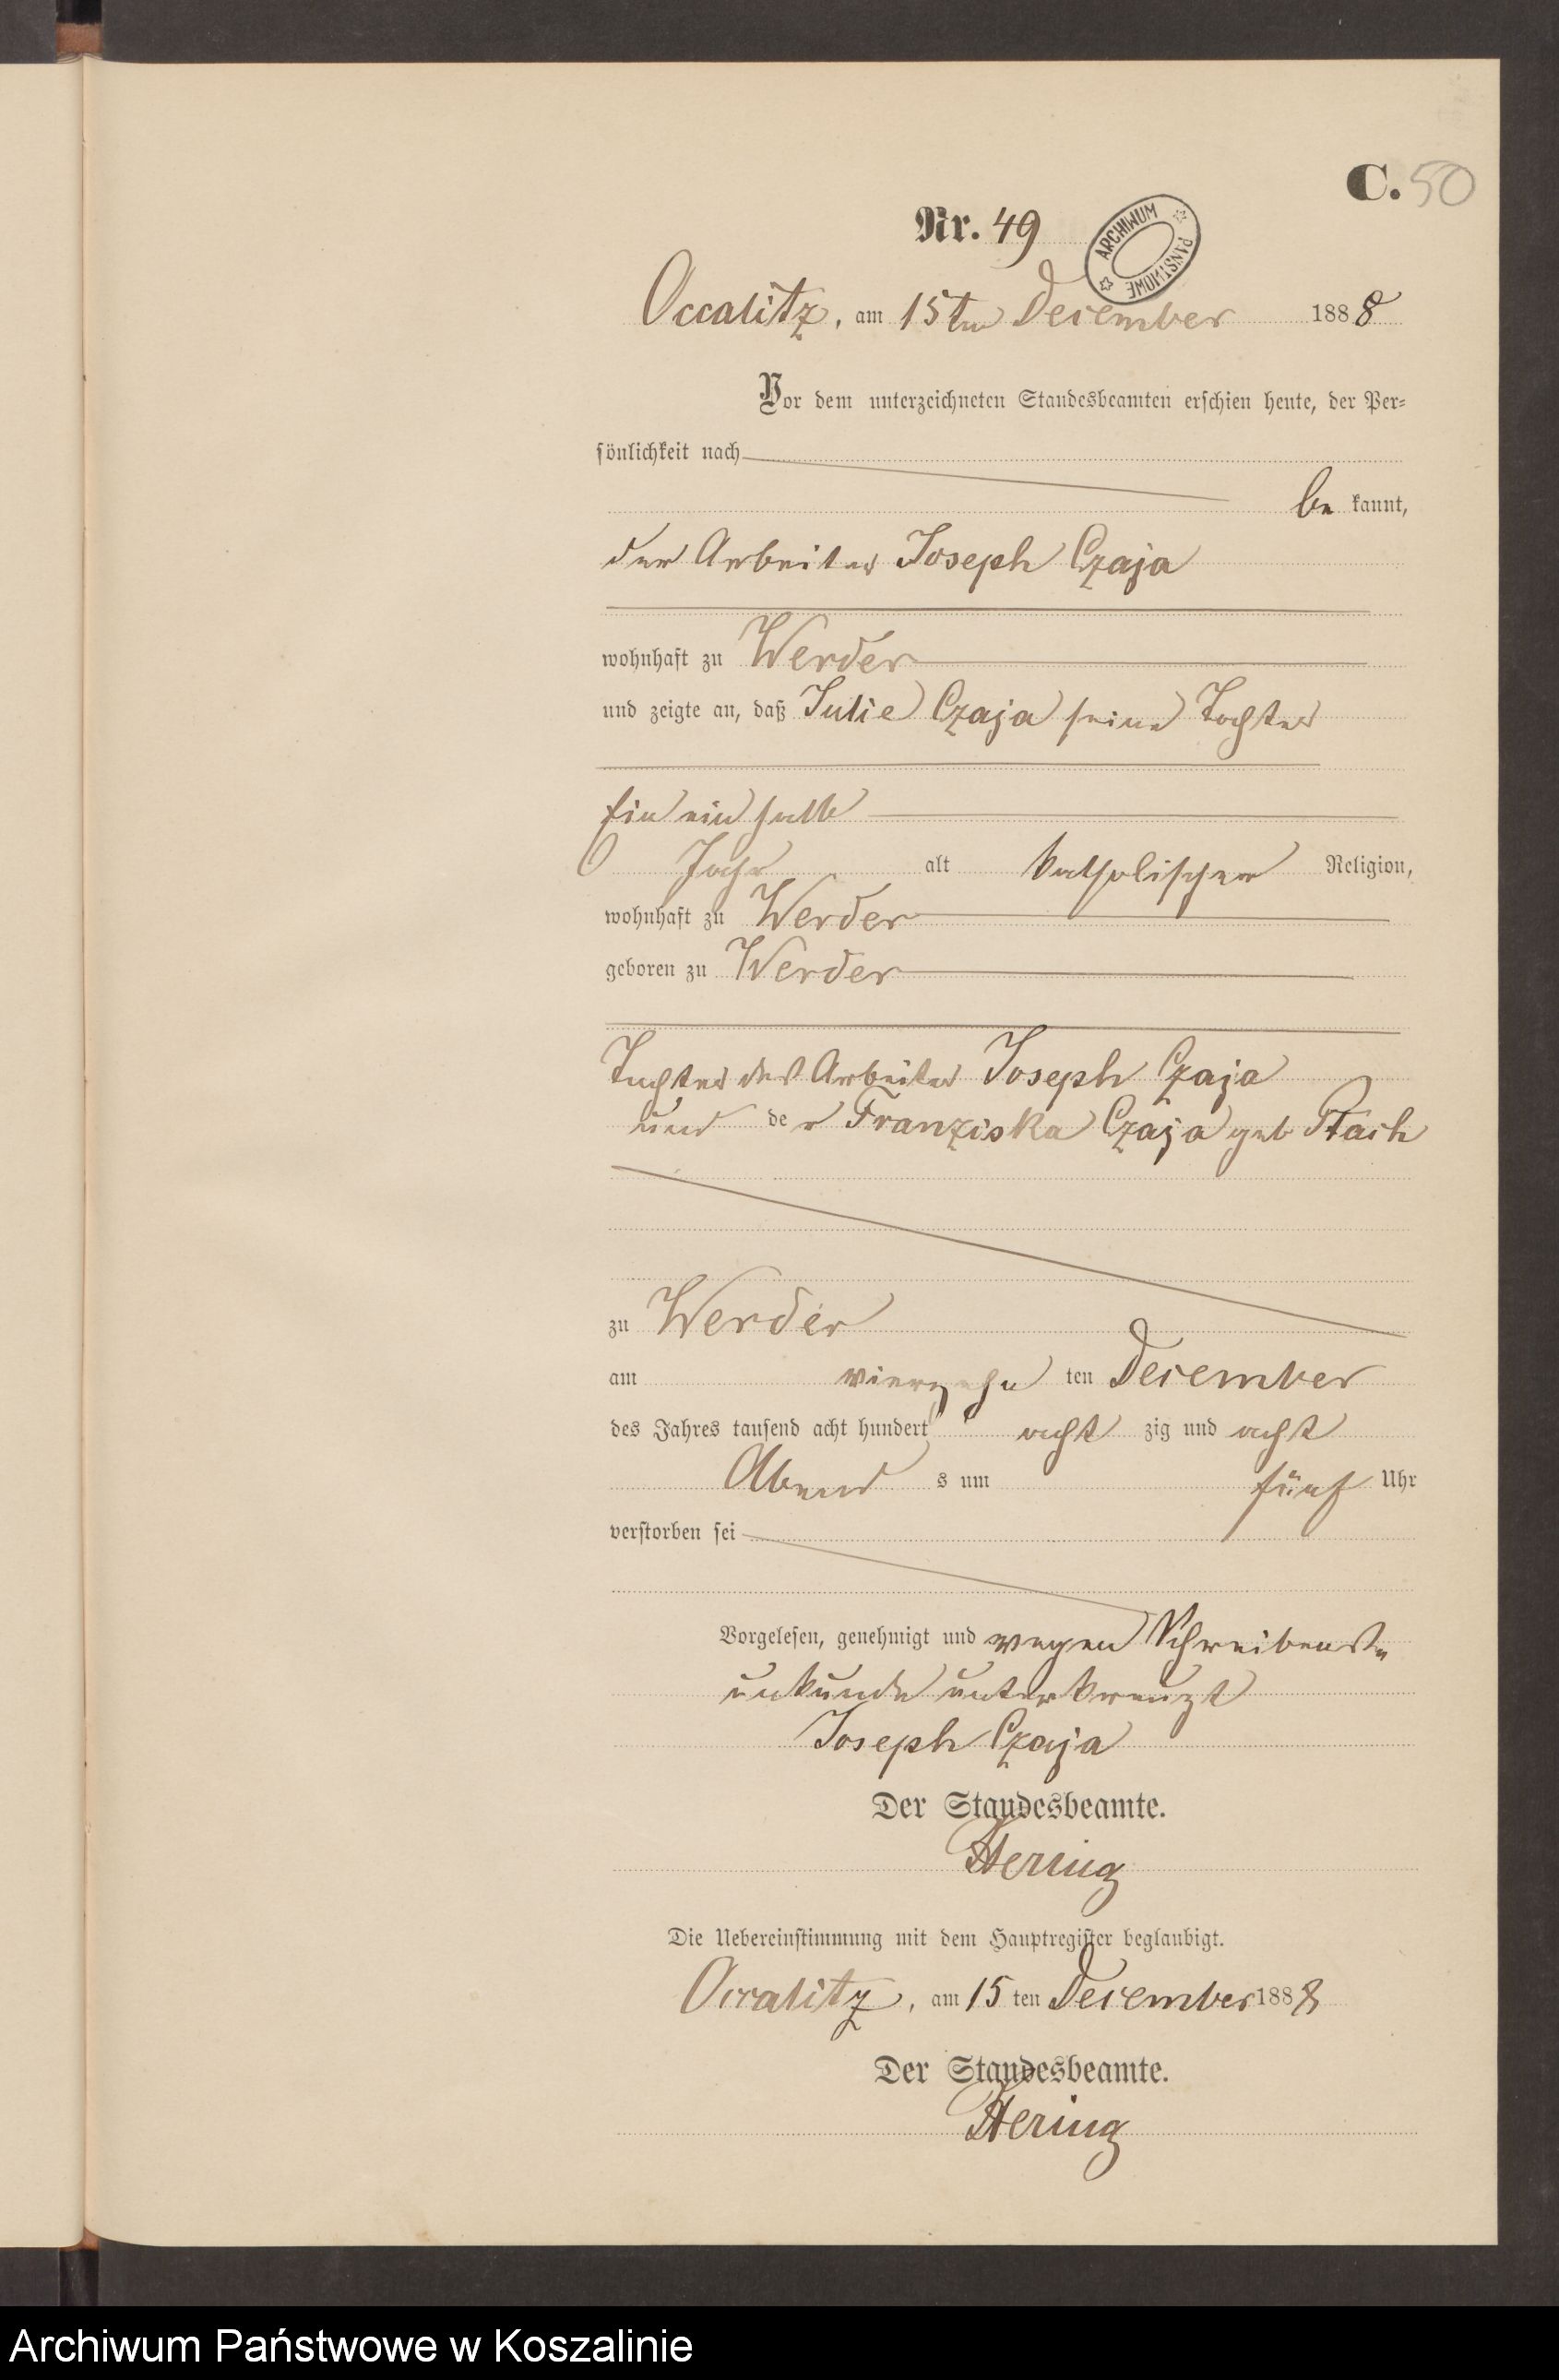 C. 50
Nr. 49
ARCHIWUM PAŃSTWOWE
Occalitz, am 15ten December 1888
Vor dem unterzeichneten Standesbeamten erschien heute, der Per-
sönlichkeit nach
be kannt,
der Arbeiter Joseph Czaja
wohnhaft zu Werder
und zeigte an, daß Julie Czaja seine Tochter
Ein ein halb
Jahr alt katholischer Religion,
wohnhaft zu Werder
geboren zu Werder
Tochter des Arbeiter Joseph Czaja
und der Franziska Czaja geb
zu Werder
am vierzehn ten December
des Jahres tausend acht hundert acht zig und acht
Abend s um fünf Uhr
verstorben sei
Vorgelesen, genehmigt und wegen Schreibens
unkunde unterkreuzt
Joseph Czaja
Der Standesbeamte.
Hering
Die Uebereinstimmung mit dem Hauptregister beglaubigt.
Occalitz, am 15 ten December 1888
Der Standesbeamte.
Hering
Archiwum Państwowe w Koszalinie